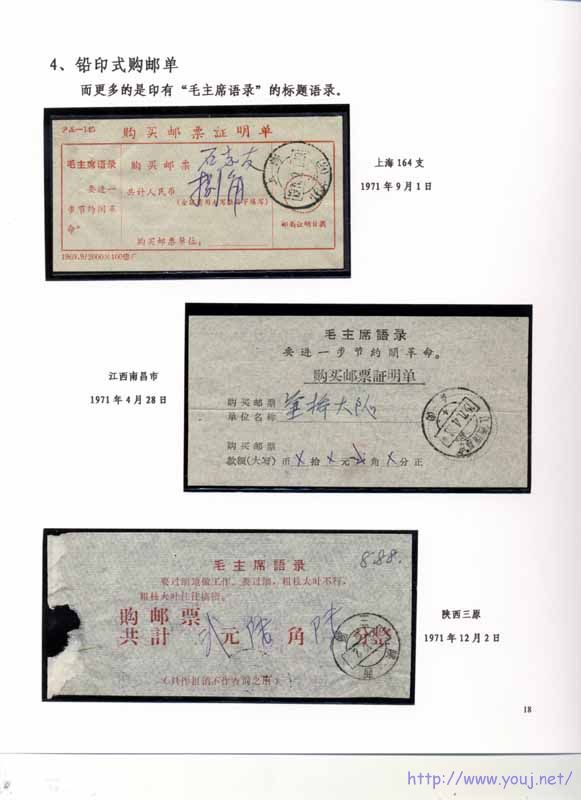 4、铅印式购邮单
而更多的是印有“毛主席语录”的标题语录。
沪革—145
购买邮票证明单
毛主席语录
要进一
步节约闹革
命。
购买邮票
共计人民币 捌角
邮局证明日戳
购买邮票单位:
1969.9/2000×100
上海164支
1971年9月1日
毛主席語录
要进一步节约閙革命。
购买邮票証明单
购买邮票
单位名称 大队
购买邮票
款额(大写) 币 拾 元 角 分正
江西南昌市
1971年4月28日
毛主席語录
要过细地做工作。要过细,粗枝大叶不行,
粗枝大叶往往搞错。
8.88.
購邮票
共計 元 角 分整
(只作报销不作查询之用)
陕西三原
1971年12月2日
18
http://www.youj.net